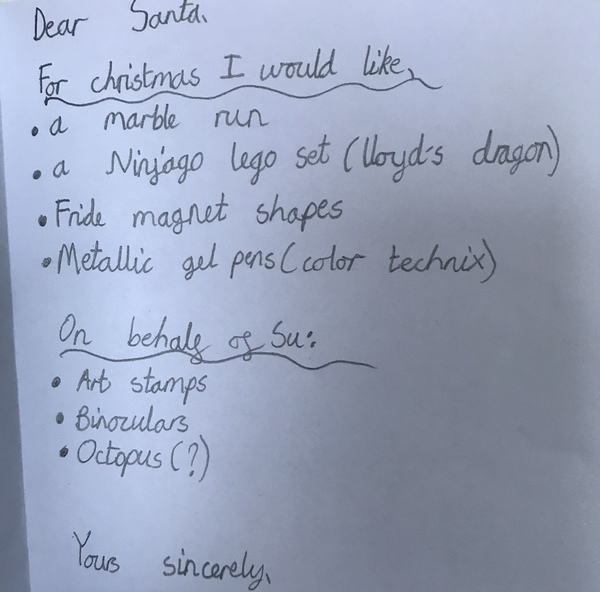 Dear Santa,
For christmas I would like,
• a marble run
• a Ninjago lego set (lloyd's dragon)
• Fride magnet shapes
• Metallic gel pens (color technix)
On behalf of Su:
• Art stamps
• Binoculars
• Octopus (?)
Yours sincerely,